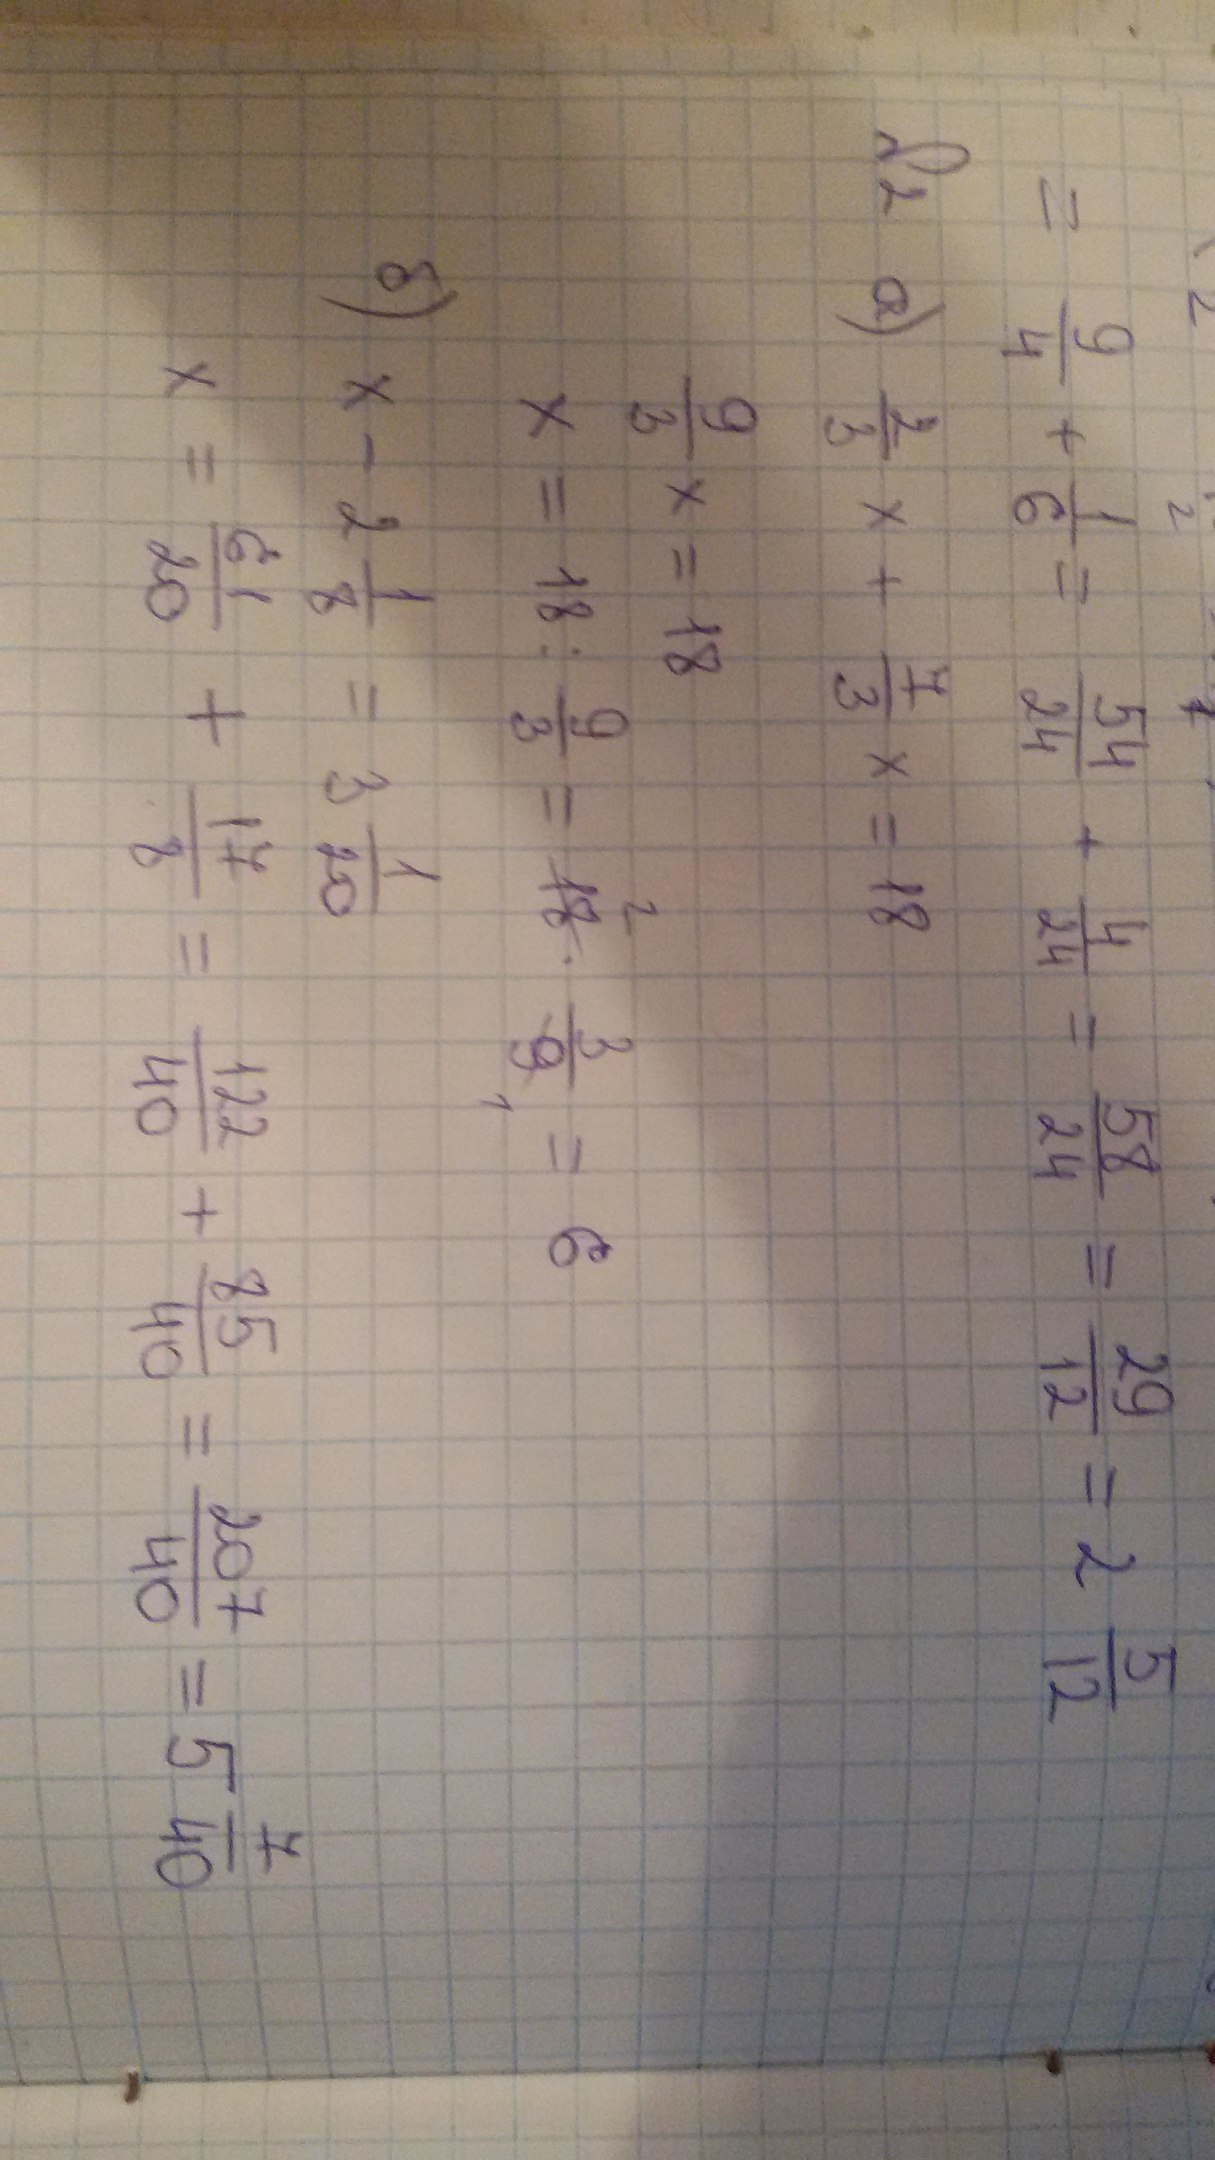 = 9/4 + 1/6 = 54/24 + 4/24 = 58/24 = 29/12 = 2 5/12
№2 а) 2/3 x + 7/3 x = 18
9/3 x = 18
x = 18 : 9/3 = 18 2 · 3/9 1 = 6
б) x - 2 1/8 = 3 1/20
x = 61/20 + 17/8 = 122/40 + 85/40 = 207/40 = 5 7/40